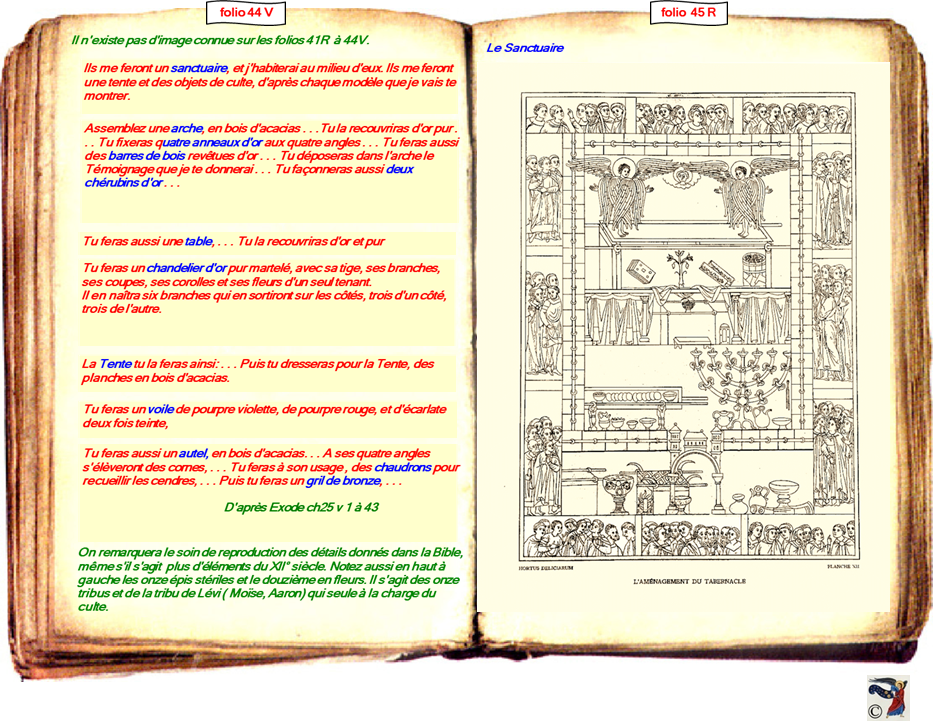 folio 44 V
Il n'existe pas d'image connue sur les folios 41R à 44V.
Ils me feront un sanctuaire, et j'habiterai au milieu d'eux. Ils me feront
une tente et des objets de culte, d'après chaque modèle que je vais te
montrer.
Assemblez une arche, en bois d'acacias . . . Tu la recouvriras d'or pur .
. . Tu fixeras quatre anneaux d'or aux quatre angles . . . Tu feras aussi
des barres de bois revêtues d'or . . . Tu déposeras dans l'arche le
Témoignage que je te donnerai . . . Tu façonneras aussi deux
chérubins d'or . . .
Tu feras aussi une table, . . . Tu la recouvriras d'or et pur
Tu feras un chandelier d'or pur martelé, avec sa tige, ses branches,
ses coupes, ses corolles et ses fleurs d'un seul tenant.
Il en naîtra six branches qui en sortiront sur les côtés, trois d'un côté,
trois de l'autre.
La Tente tu la feras ainsi: . . . Puis tu dresseras pour la Tente, des
planches en bois d'acacias.
Tu feras un voile de pourpre violette, de pourpre rouge, et d'écarlate
deux fois teinte,
Tu feras aussi un autel, en bois d'acacias. . . A ses quatre angles
s'élèveront des cornes, . . . Tu feras à son usage , des chaudrons pour
recueillir les cendres, . . . Puis tu feras un gril de bronze, . . .
D'après Exode ch25 v 1 à 43
On remarquera le soin de reproduction des détails donnés dans la Bible,
même s'il s'agit plus d'éléments du XII° siècle. Notez aussi en haut à
gauche les onze épis stériles et le douzième en fleurs. Il s'agit des onze
tribus et de la tribu de Lévi ( Moïse, Aaron) qui seule à la charge du
culte.
folio 45 R
Le Sanctuaire
HORTUS DELICIARUM
PLANCHE XII
L'AMÉNAGEMENT DU TABERNACLE
©